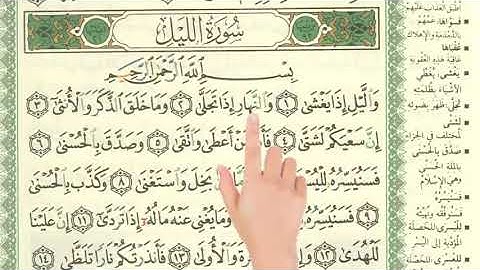 سُورَةُ اللَّيْلِ
بِسْمِ ٱللَّهِ ٱلرَّحْمَٰنِ ٱلرَّحِيمِ
وَٱلَّيْلِ إِذَا يَغْشَىٰ ١ وَٱلنَّهَارِ إِذَا تَجَلَّىٰ ٢ وَمَا خَلَقَ ٱلذَّكَرَ وَٱلْأُنثَىٰٓ ٣
إِنَّ سَعْيَكُمْ لَشَتَّىٰ ٤ مَنْ أَعْطَىٰ وَٱتَّقَىٰ ٥ وَصَدَّقَ بِٱلْحُسْنَىٰ ٦
فَسَنُيَسِّرُهُۥ بَخِلَ وَٱسْتَغْنَىٰ ٨ وَكَذَّبَ بِٱلْحُسْنَىٰ
٩ فَسَنُيَسِّرُهُۥ وَمَا يُغْنِى عَنْهُ مَالُهُۥٓ إِذَا تَرَدَّىٰٓ ١١ إِنَّ عَلَيْنَا
لَلْهُدَىٰ ١٢ وَٱلْأُولَىٰ ١٣ فَأَنذَرْتُكُمْ نَارًا تَلَظَّىٰ ١٤
أطبق العذاب عليهم
فسوّاها: عمّهم
بالدّمدمة والإهلاك
عقباها
عاقبة هذه العقوبة
يغشى: يغطّي
الأشياء بظلمته
تجلّى: ظهر بضوئه
لشتّى
لمختلف في الجزاء
صدّق بالحسنى
بالملّة الحسنى
وهي الإسلام
فسنيسّره
فسنوفّقه ونهيّئه
لليسرى: للخصلة
المؤدّية إلى اليسر
للعسرى: للخصلة